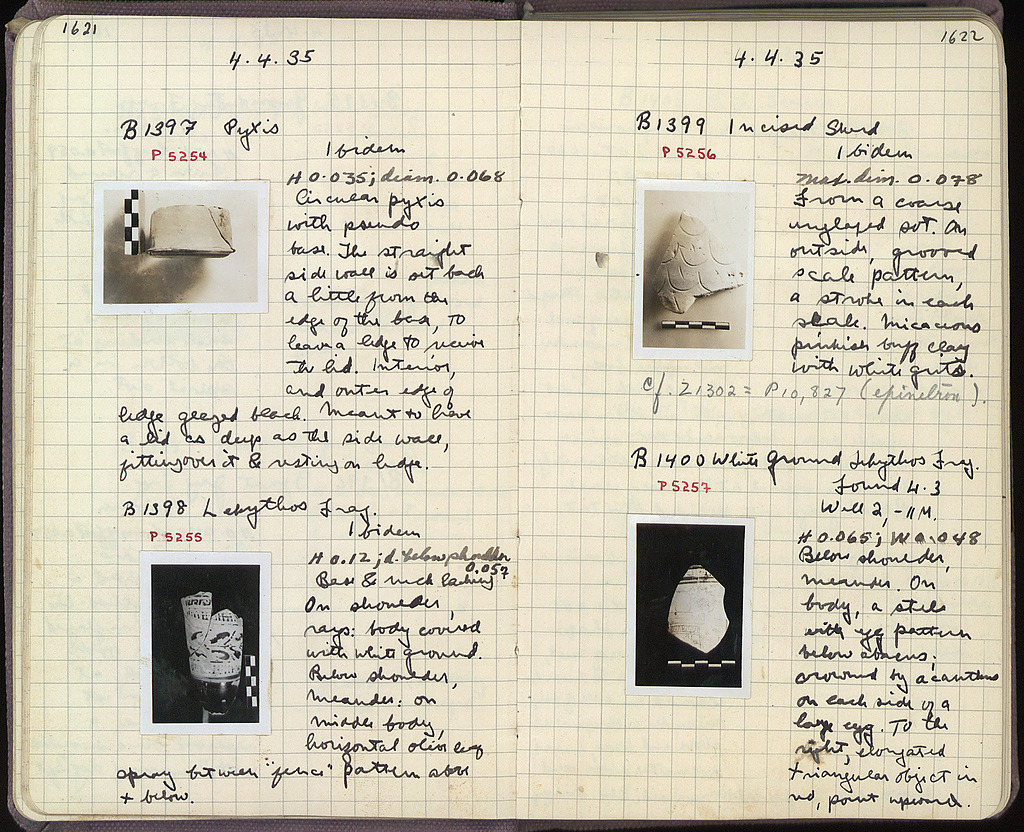 1621
4.4.35
B 1397 Pyxis
P 5254
Ibidem
H 0.035; diam. 0.068
Circular pyxis
with pseudo
base. The straight
side wall is set back
a little from the
edge of the base, to
leave a ledge to receive
the lid. Interior,
and outer edge of
ledge glazed black. Meant to have
a lid as deep as the side wall,
fitting over it & resting on ledge.
B 1398 Lekythos Frag.
P 5255
Ibidem
H 0.12; d. below shoulder
0.057
Base & neck lacking
On shoulder,
rays: body covered
with white ground.
Below shoulder,
meander: on
middle body,
horizontal olive leaf
spray between "fence" pattern above
+ below.
1622
4.4.35
B 1399 Incised Sherd
P 5256
Ibidem
Max. dim. 0.078
From a coarse
unglazed pot. On
outside, grooved
scale pattern,
a stroke in each
scale. Micaceous
pinkish buff clay
with white grits.
Cf. Z1302 = P 10,827 (epinetron).
B 1400 White Ground Lekythos Frag.
P 5257
Found 4.3
Well 2, -11 M.
H 0.065; W 0.048
Below shoulder,
meander. On
body, a stele
with egg pattern
below abacus;
crowned by acanthus
on each side of a
large egg. To the
right, elongated
triangular object in
red, point upward.